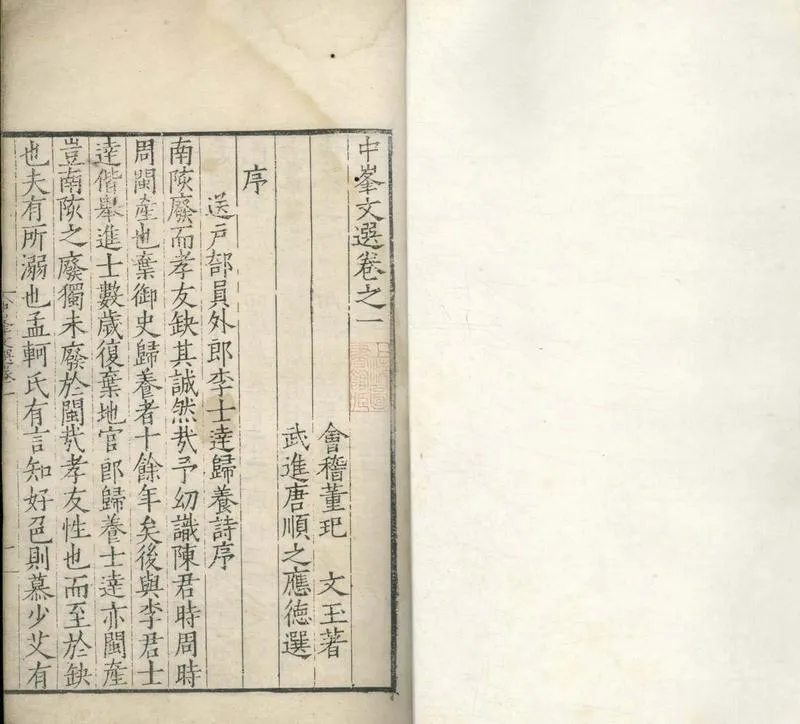 中峯文選卷之一
會稽董玘 文玉著
武進唐順之應德選
序
送戶部員外郎李士達歸養詩序
南陔廢而孝友缺其誠然㢤予幼識陳君時周時
周閩產也棄御史歸養者十餘年矣後與李君士
達偕舉進士數歲復棄地官郎歸養士達亦閩產
豈南陔之廢獨未廢於閩㢤孝友性也而至於缺
也夫有所溺也孟軻氏有言知好色則慕少艾有
中峯文選卷一